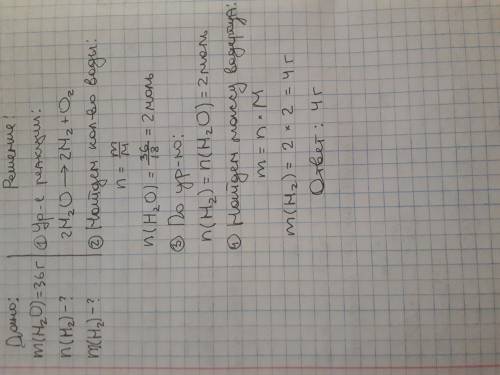 Дано:
m(H₂O)=36г
n(H₂)-?
m(H₂)-?
Решение:
① Ур-е реакции:
2H₂O → 2H₂ + O₂
② Найдем кол-во воды:
n = m/M
n(H₂O) = 36/18 = 2 моль
③ По ур-ю:
n(H₂) = n(H₂O) = 2 моль
④ Найдем массу водорода:
m = n · M
m(H₂) = 2 * 2 = 4 г
Ответ: 4 г